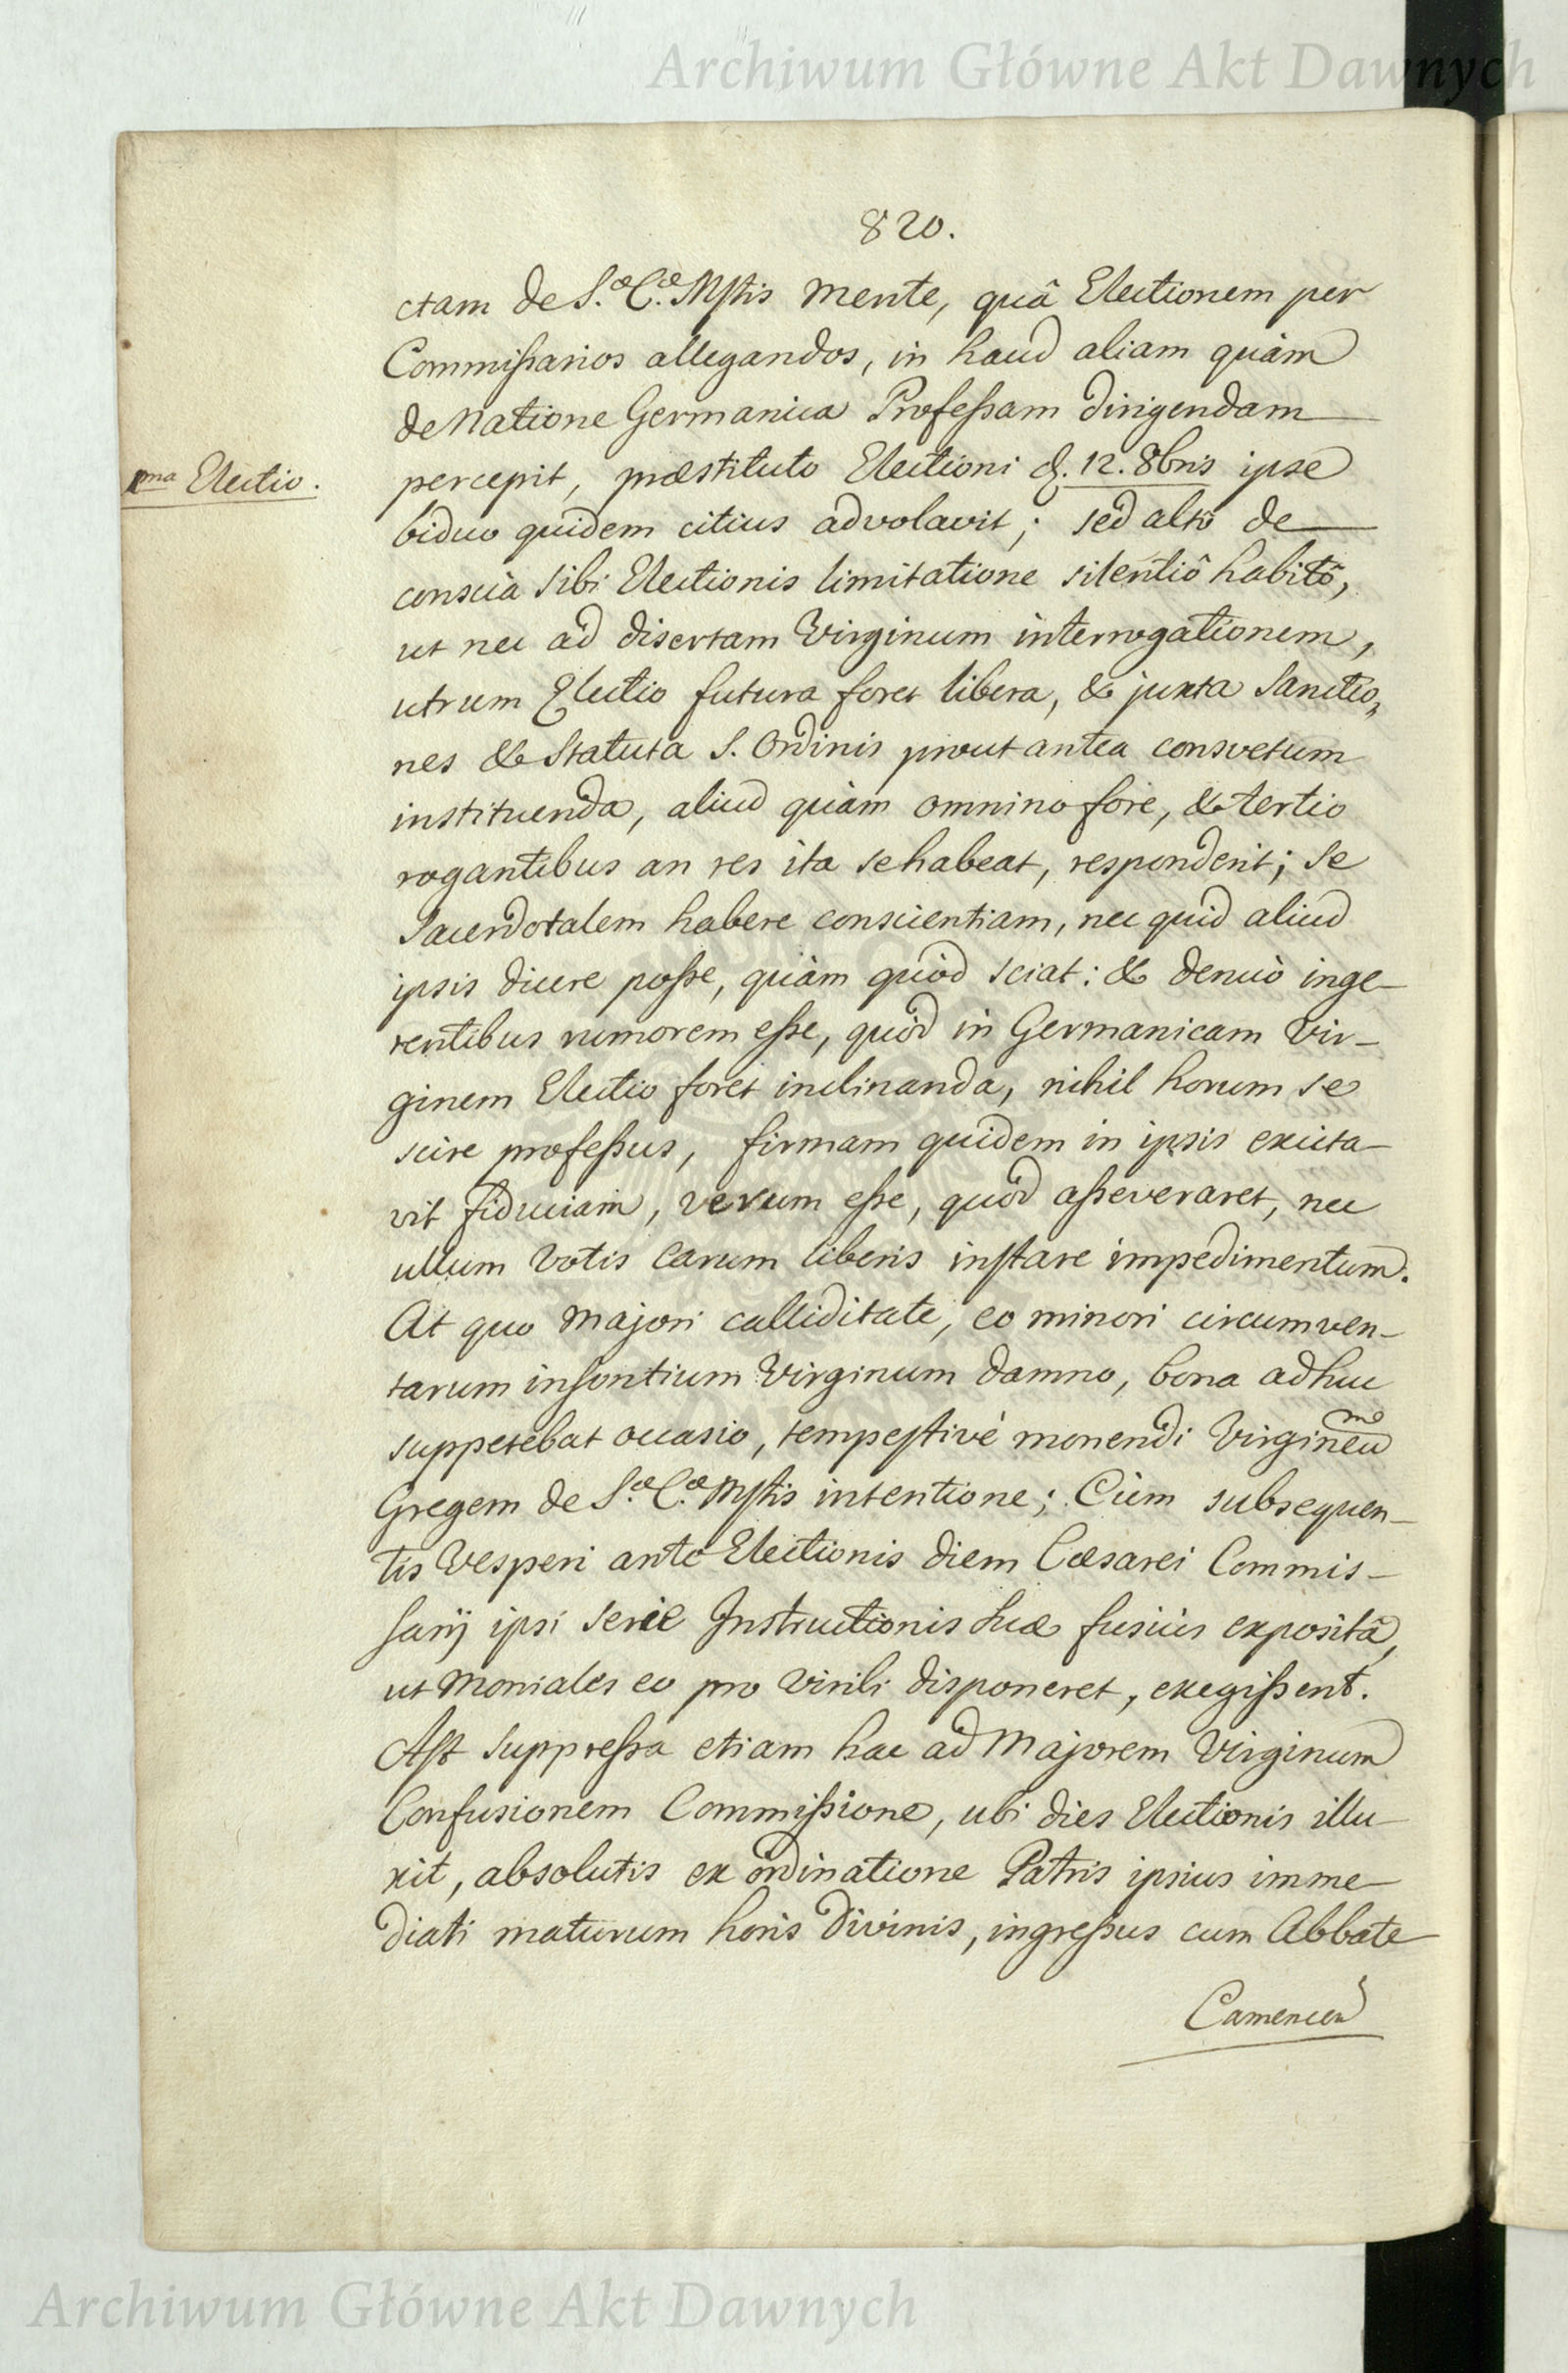 Archiwum Główne Akt Dawnych
820.
ctam de S.æ C.æ Mstis mente, quâ Electionem per
Commißarios allegandos, in haud aliam quàm
de Natione Germanica Profeßam dirigendam
1ma Electio.
percepit, præstituto Electioni d. 12. 8bris ipse
biduo quidem citius advolavit; sed altô de
consciâ sibi Electionis limitatione silentiô habitô,
ut nec ad disertam Virginum interrogationem,
utrum Electio futura foret libera, & juxta Sanctio„
nes & Statuta S. Ordinis prout antea consvetum
instituenda, aliud quàm omnino fore, & tertio
rogantibus an res ita se habeat, responderit; se
Sacerdotalem habere conscientiam, nec quid aliud
ipsis dicere poße, quàm quòd sciat: & denuò inge-
rentibus rumorem eße, quòd in Germanicam Vir-
ginem Electio foret inclinanda, nihil horum se
scire profeßus, firmam quidem in ipsis excita-
vit fiduciam, verum eße, quòd aßeveraret, nec
ullum votis earum liberis instare impedimentum.
At quo majori calliditate, eo minori circumven-
tarum insontium Virginum damno, bona adhuc
suppetebat occasio, tempestivè monendi Virgineum
Gregem de S.æ C.æ Mstis intentione; Cùm subsequen-
tis Vesperi ante Electionis diem Cæsarei Commis-
sarij ipsi serie Instructionis suæ fusius expositâ,
ut Moniales eo pro virili disponeret, exegißent.
Ast suppreßa etiam hac ad Majorem Virginum
Confusionem Commißione, ubi dies Electionis illu-
xit, absolutis ex ordinatione Patris ipsius imme-
diati maturum horis Divinis, ingreßus cum Abbate
Camencen
Archiwum Główne Akt Dawnych